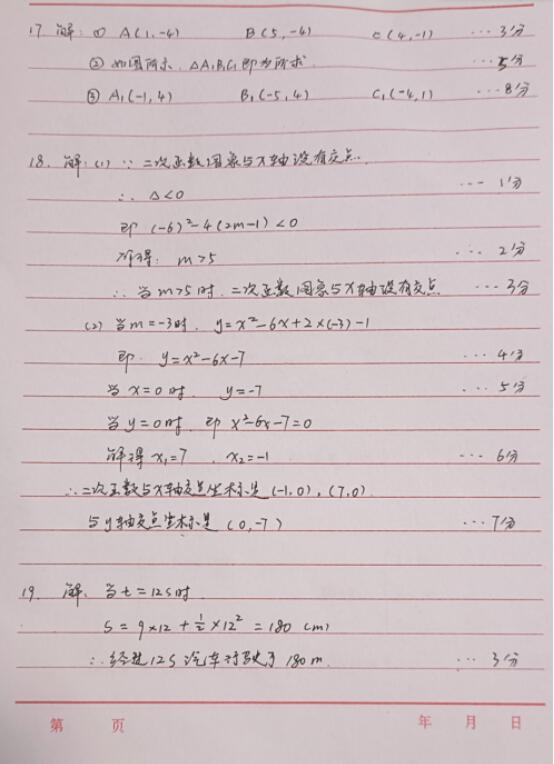 17. 解: ① A(1,-4) B(5,-4) C(4,-1) …3分
② 如图所示, △A₁B₁C₁即为所求. …5分
③ A₁(-1,4) B₁(-5,4) C₁(-4,1) …8分
18. 解: (1) ∵ 二次函数图象与x轴没有交点.
∴ △<0 …1分
即 (-6)²-4(2m-1)<0
解得: m>5 …2分
∴ 当m>5时, 二次函数图象与x轴没有交点 …3分
(2) 当m=-3时, y=x²-6x+2×(-3)-1
即 y=x²-6x-7 …4分
当x=0时, y=-7 …5分
当y=0时, 即 x²-6x-7=0
解得 x₁=7, x₂=-1 …6分
∴二次函数与x轴交点坐标是(-1,0),(7,0)
与y轴交点坐标是(0,-7) …7分
19. 解: 当t=12s时
S=9×12+½×12²=180 (m)
∴经过12s汽车行驶了180m. …3分
第 页 年 月 日